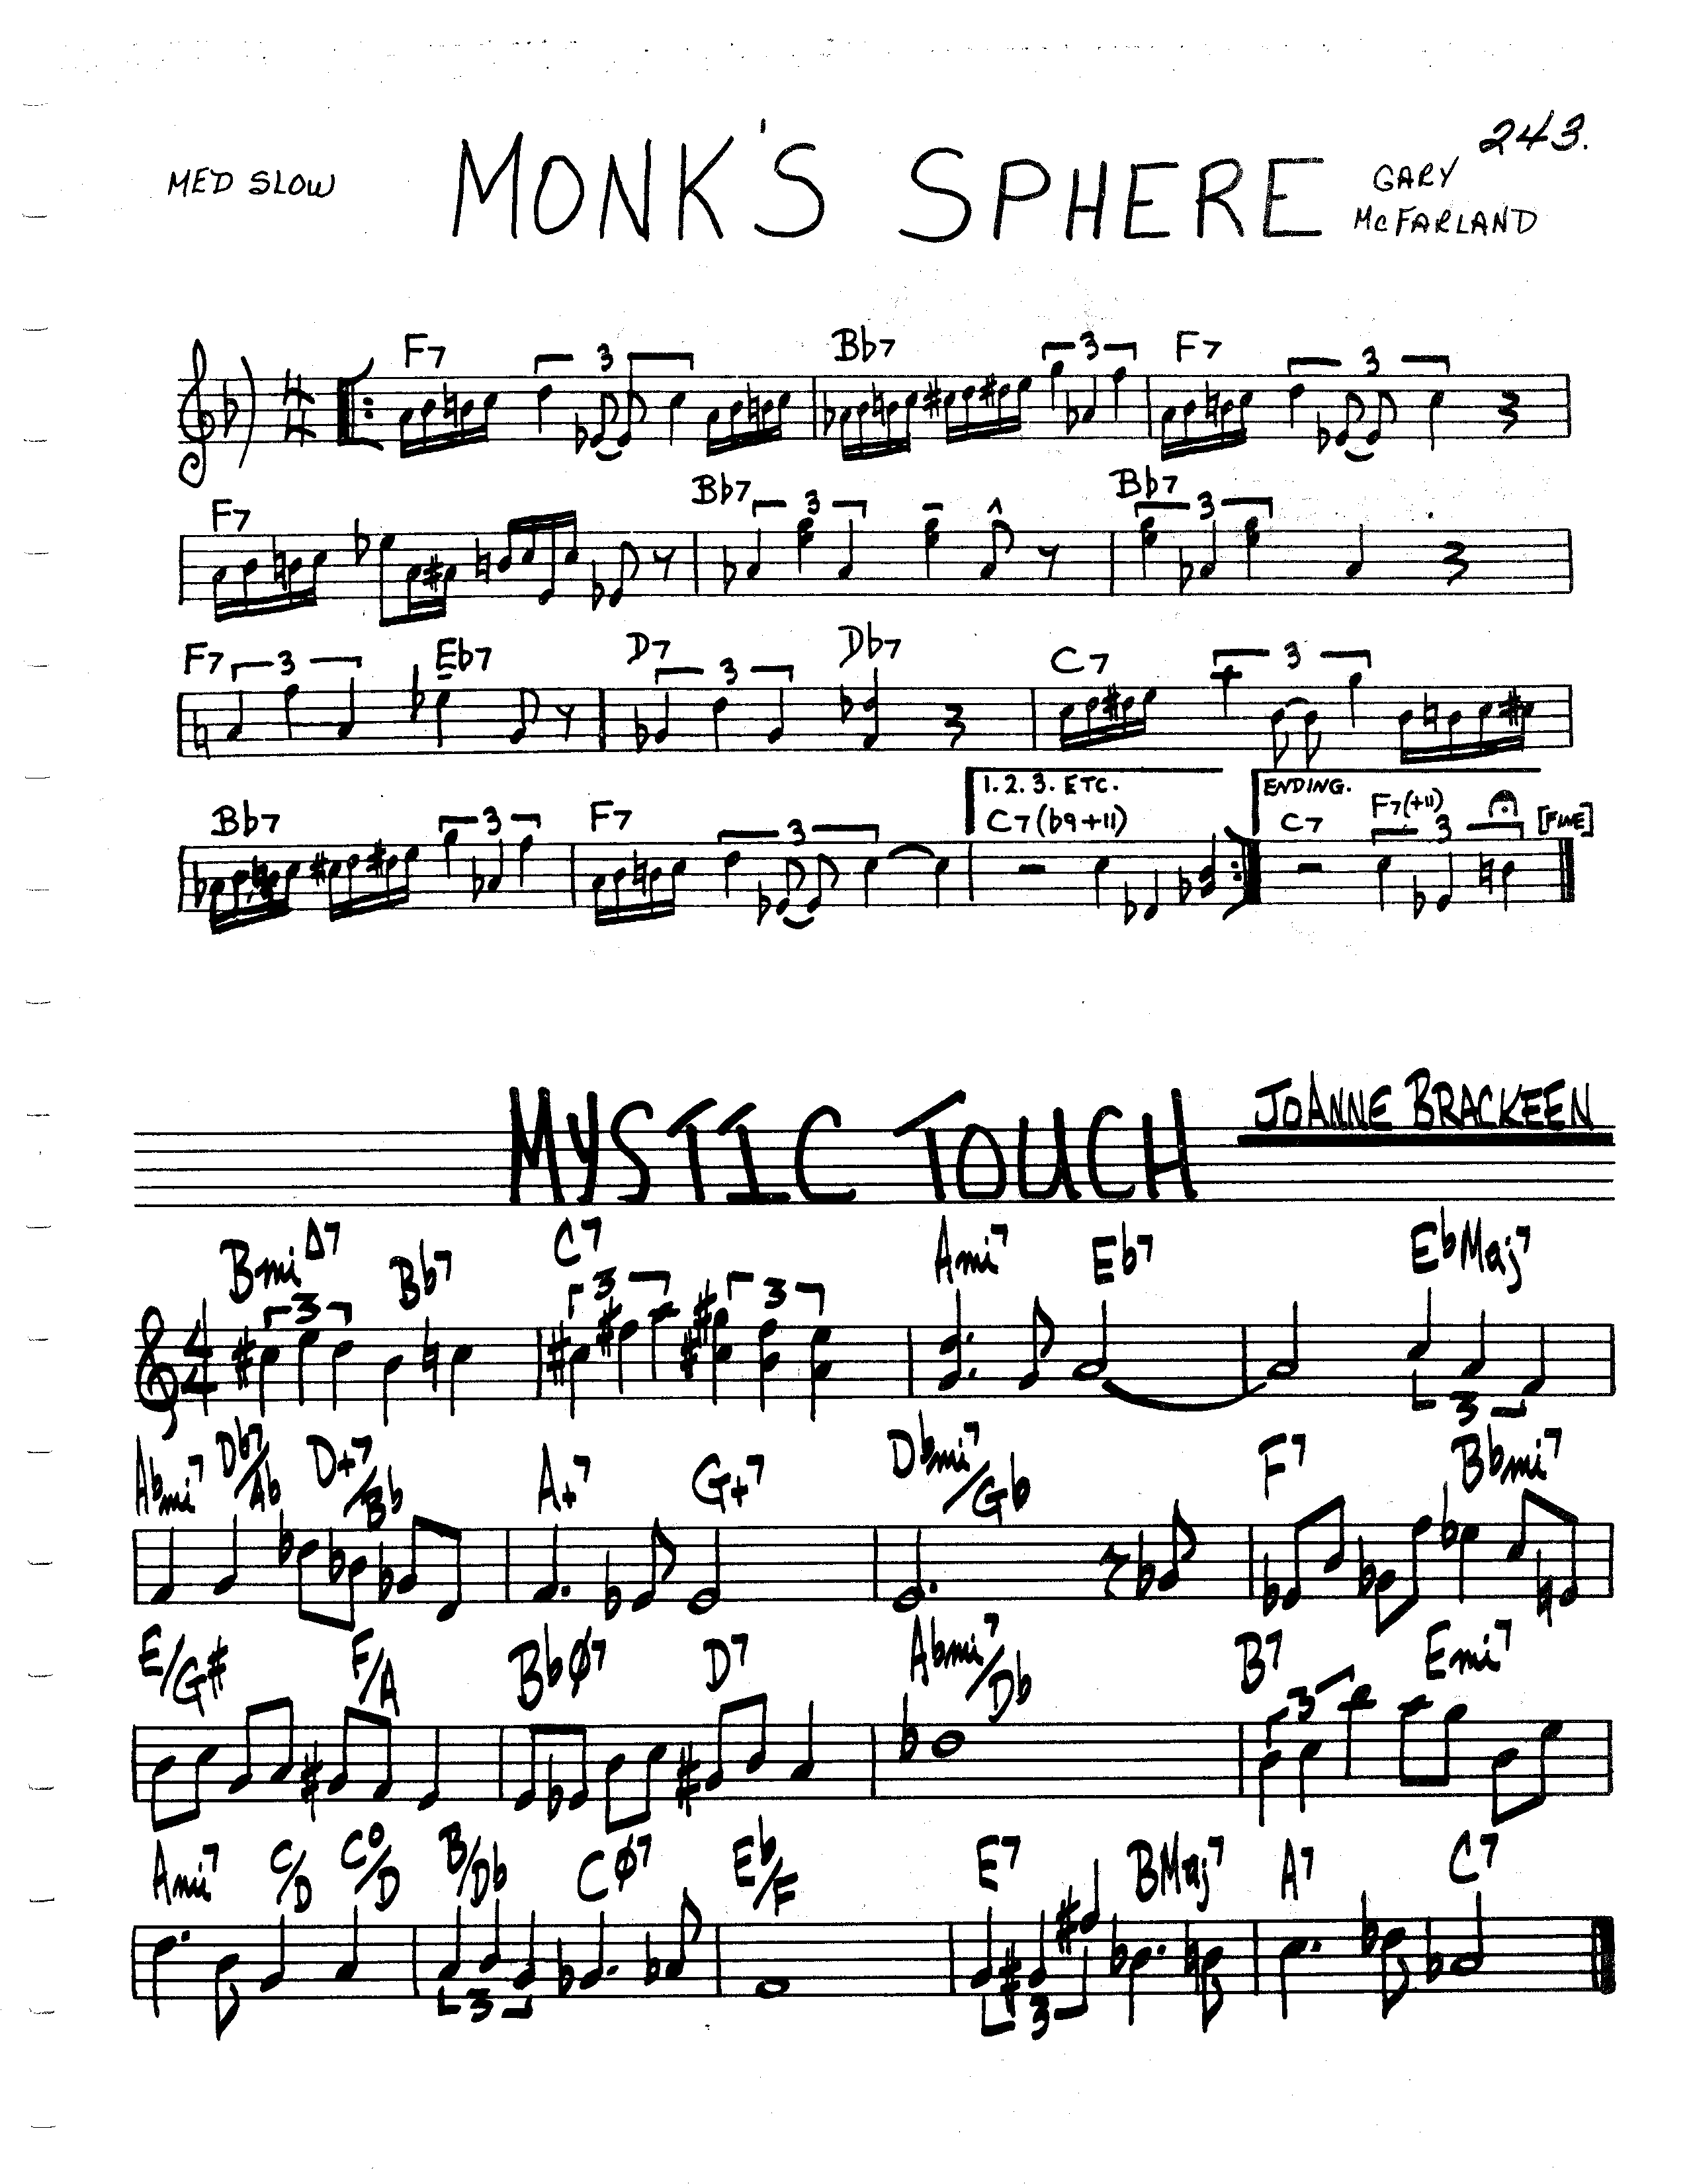 243.
MED SLOW MONK'S SPHERE GARY McFARLAND
4/4 F7 3 Bb7 3 F7 3
F7 Bb7 3 Bb7 3
F7 3 Eb7 D7 3 Db7 C7 3
1. 2. 3. ETC. ENDING.
Bb7 3 F7 3 C7(b9+11) C7 F7(+11) 3 [FINE]
MYSTIC TOUCH JOANNE BRACKEEN
Bmi∆7 Bb7 C7 Ami7 Eb7 EbMaj7
4/4 3 3 3 3
Abmi7 Db7/Ab D+7/Bb A+7 G+7 Dbmi7/Gb F7 Bbmi7
E/G# F/A Bbø7 D7 Abmi7/Db B7 Emi7
3
Ami7 C/D C°/D B/Db Cø7 Eb/F E7 BMaj7 A7 C7
3 3